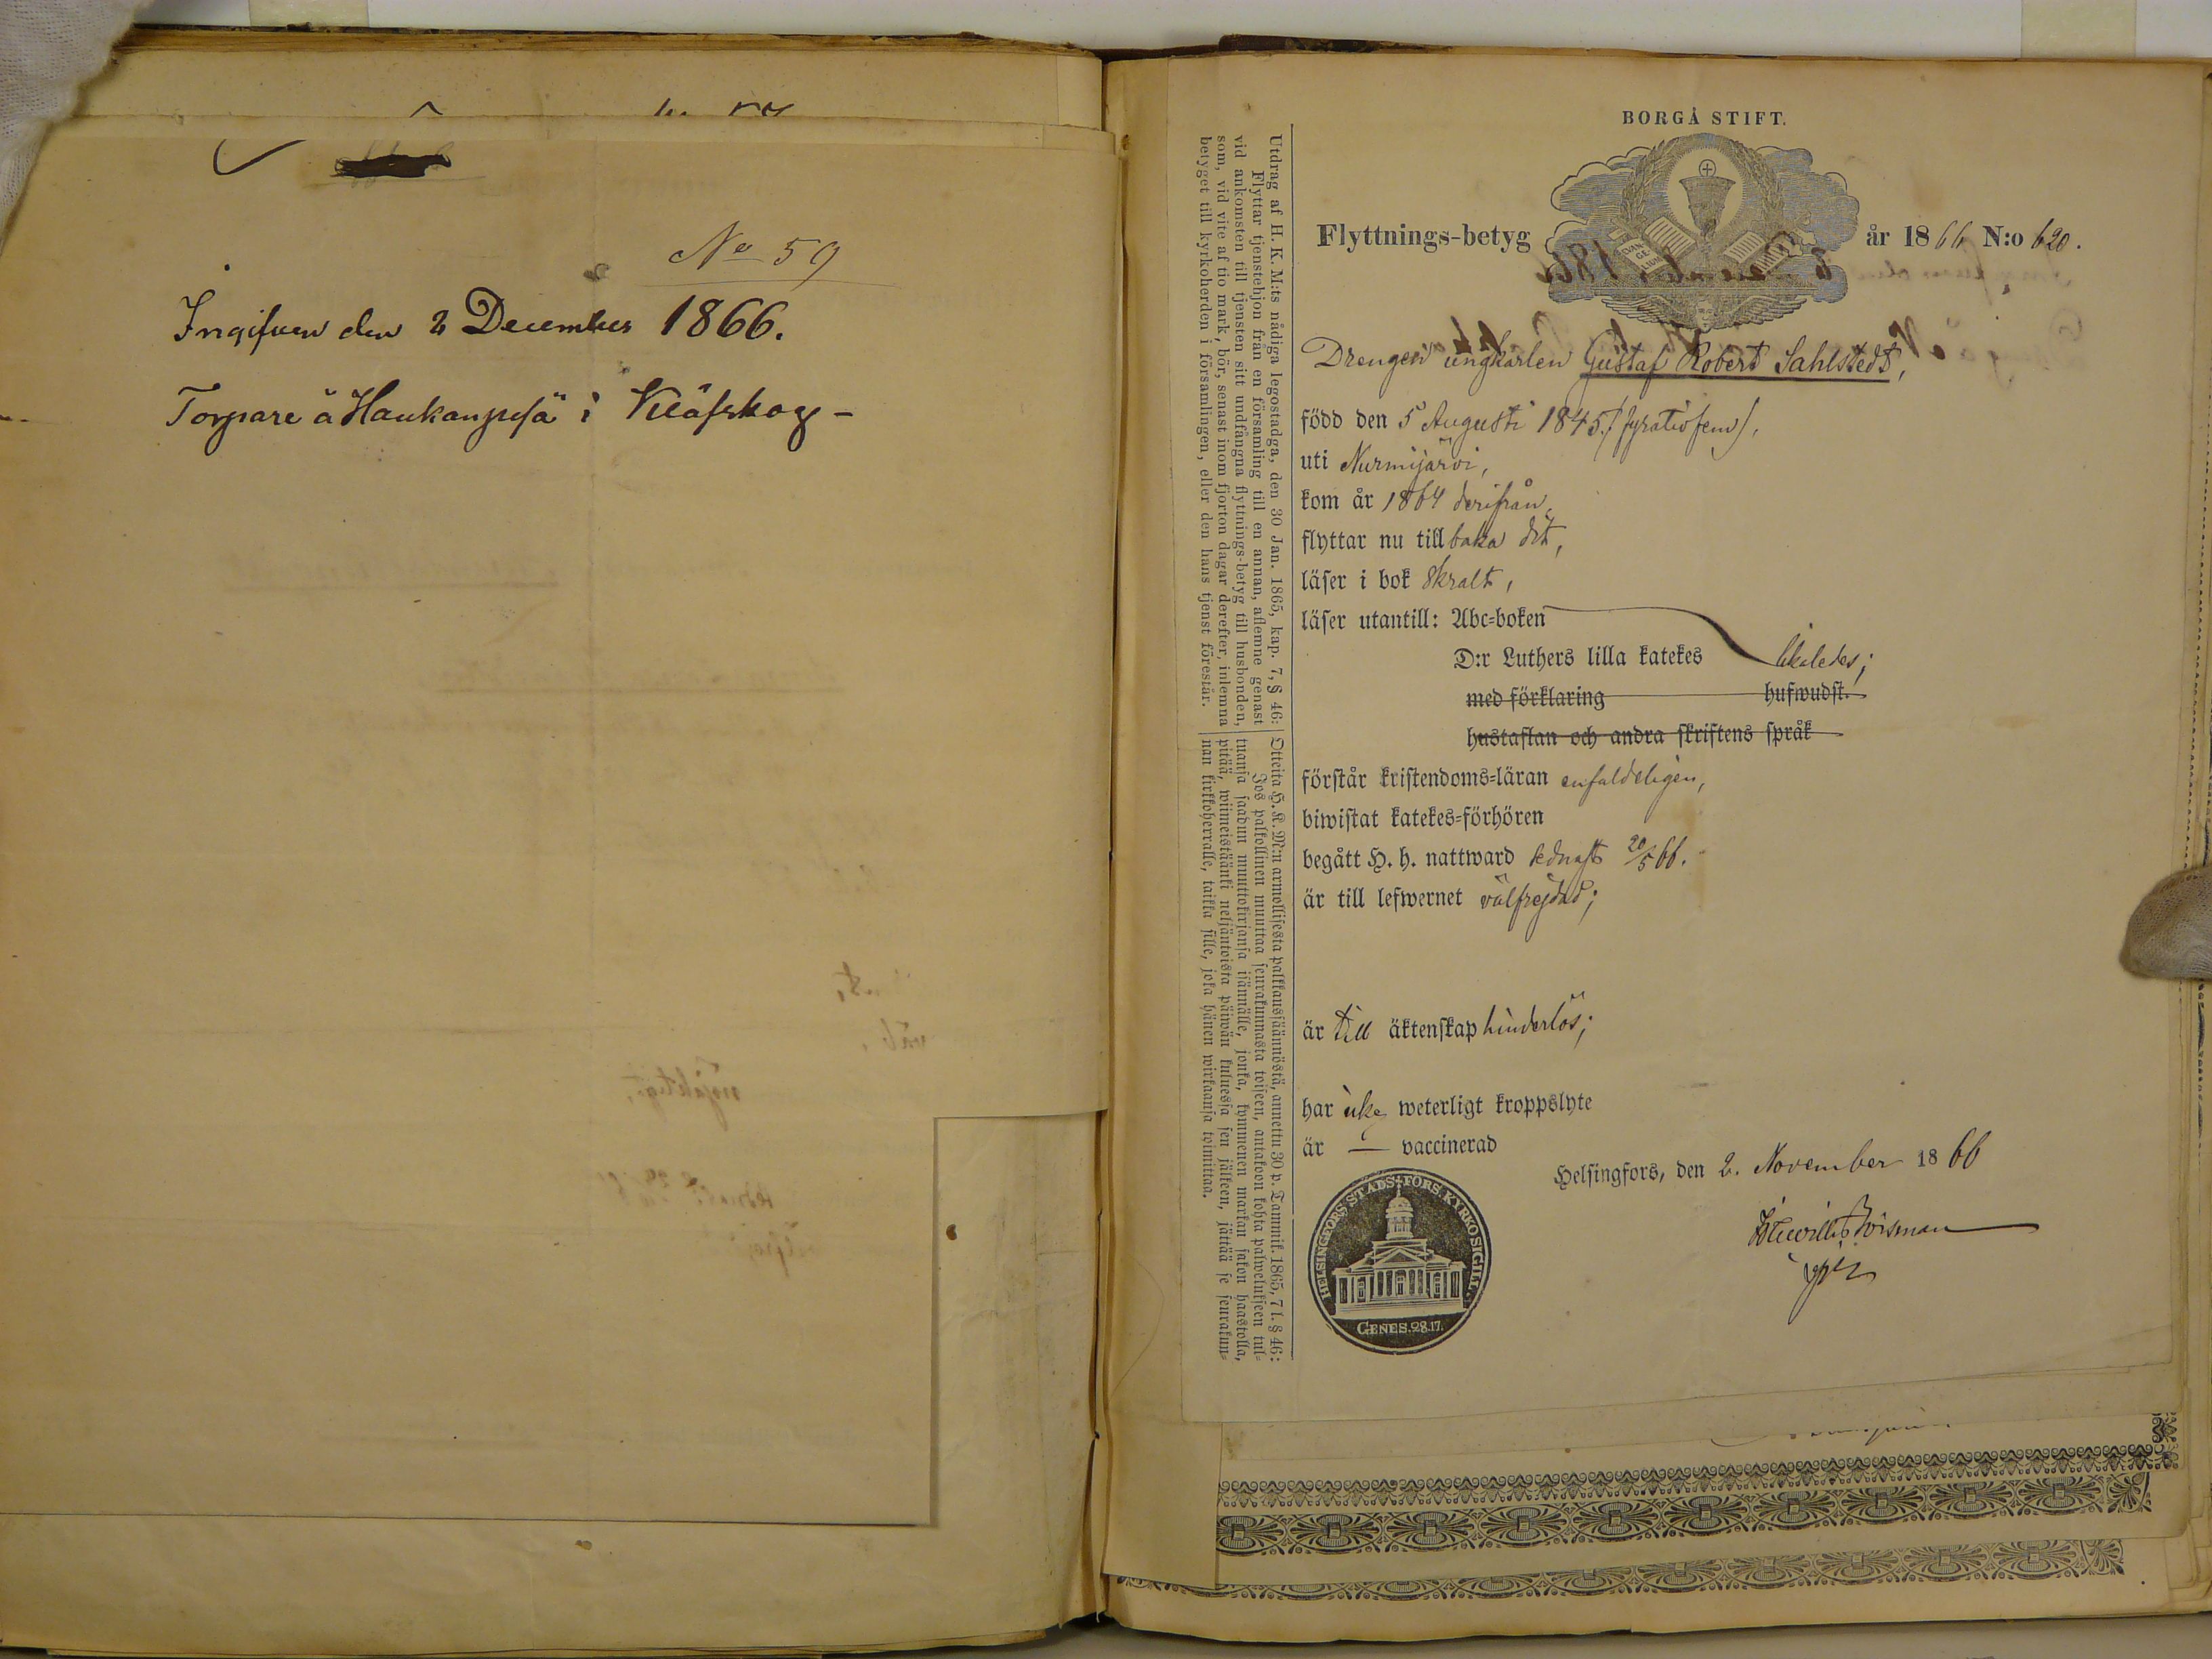 No 59
Ingifven den 2 December 1866.
Torpare å Haukanpesä i
BORGÅ STIFT.
Flyttnings-betyg år 1866 N:o 620.
EVAN GE LIUM
Drengen ungkarlen Gustaf Robert Sahlstedt,
född den 5 Augusti 1845 /fyratiofem/,
uti Nurmijärvi,
kom år 1864 derifrån,
flyttar nu tillbaka dit,
läser i bok skralt,
läser utantill: Abc-boken
D:r Luthers lilla katekes likaledes;
med förklaring hufwudst.
hustaflan och andra skriftens språk
förstår kristendoms-läran enfaldeligen,
biwistat katekes-förhören
begått H. h. nattward sednast 20/5 66.
är till lefwernet välfrejdad;
är till äktenskap hinderlös;
har icke weterligt kroppslyte
är — vaccinerad
Helsingfors, den 2. November 1866
HELSINGFORS STADS-FÖRS. KYRKOSIGILL.
GENES. 28. 17.
Utdrag af H. K. M:ts nådiga legostadga, den 30 Jan. 1865, kap. 7, § 46:
Flyttar tjenstehjon från en församling till en annan, aflemne genast
vid ankomsten till tjensten sitt undfångna flyttnings-betyg till husbonden,
som, vid vite af tio mark, bör, senast inom fjorton dagar derefter, inlemna
betyget till kyrkoherden i församlingen, eller den hans tjenst förestår.
Otteita H. K. M:n armollisesta palkkaussäännöstä, annettu 30 p. Tammik. 1865, 7 l. § 46:
Jos palkollinen muuttaa seurakunnasta toiseen, antakoon kohta palwelukseen tul-
tuansa saadun muuttokirjansa isännälle, jonka, kymmenen markan sakon haastolla,
pitää, wiimeistäänki neljäntoista päiwän kuluessa sen jälkeen, jättää se seurakun-
nan kirkkoherralle, taikka sille, joka hänen wirkaansa toimittaa.